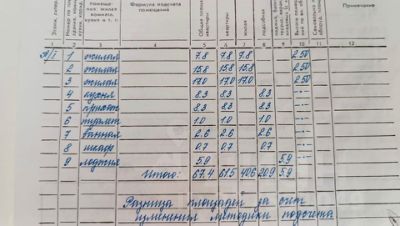 Формула подсчета помещения
Примечание
2 3 4 5 6 7 8 9 10 11 12 13
1 жилая 7.8 7.8 7.8 2.50
2 жилая 15.8 15.8 15.8 2.50
3 жилая 17.0 17.0 17.0 2.50
4 кухня 8.3 8.3 8.3 -"-
5 прихож 8.3 8.3 8.3 -"-
6 туалет 1.0 1.0 1.0 -"-
7 ванная 2.6 2.6 2.6 -"-
8 шкаф 0.7 0.7 0.7 -"-
9 лоджия 5.9 5.9
Итого: 67.4 61.5 40.6 20.9 5.9
Разница площадей за счет
изменения методики подсчета